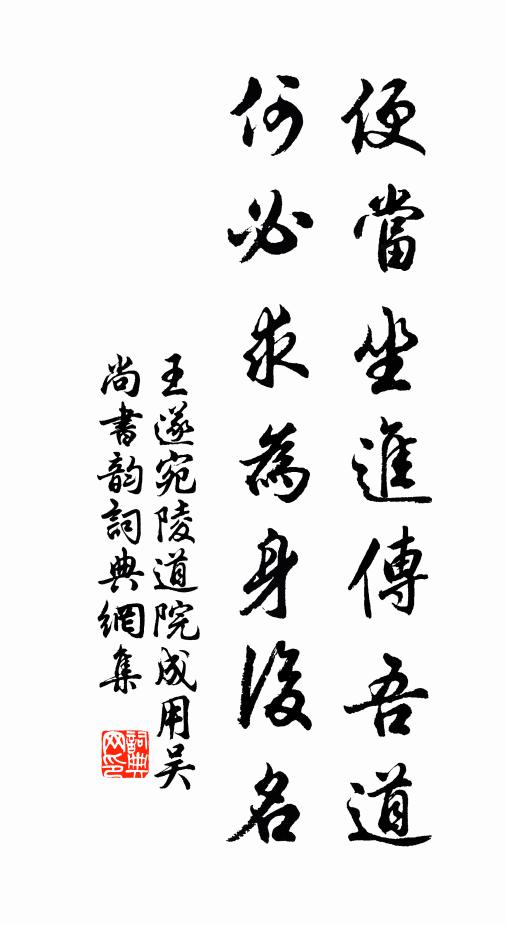 便當坐進傳吾道
何必求為身後名
王遂宛陵道院成用吳
尚書韵詞典網集
詞典网印